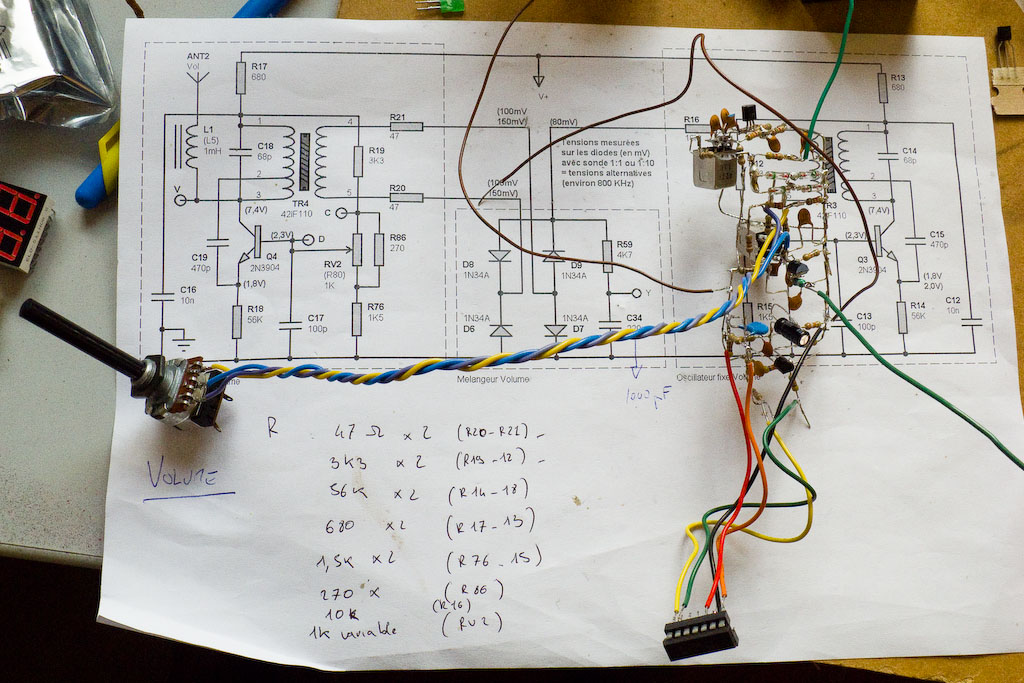 ANT2
Vol
R17
680
L1
(L5)
1mH
1
C18
68p
2
3
V
TR4
42IF110
(7,4V)
4
5
R19
3K3
R21
47
R20
47
C
D
(2,3V)
Q4
2N3904
(1,8V)
C19
470p
C16
10n
R18
56K
C17
100p
RV2
(R80)
1K
R86
270
R76
1K5
V+
(100mV
150mV)
(80mV)
Tensions mesurées
sur les diodes (en mV)
avéc sonde 1:1 ou 1:10
= tensions alternatives
(environ 800 KHz)
D8
1N34A
D9
1N34A
R59
4K7
Y
1N34A
D6
1N34A
D7
C34
Melangeur Volume
1000pF
R16
R13
680
1
C14
68p
2
3
(7,4V)
(2,3V)
Q3
2N3904
C15
470p
(1,8V
2,0V)
R15
1K5
C13
100p
R14
56K
C12
10n
Oscillateur fixe Volume
VOLUME
R
47 Ω x 2 (R20-R21)
3K3 x 2 (R19-12)
56K x 2 (R14-18)
680 x 2 (R17-13)
1,5K x 2 (R76-15)
270 x (R86)
10K (R16)
1K variable (RV2)